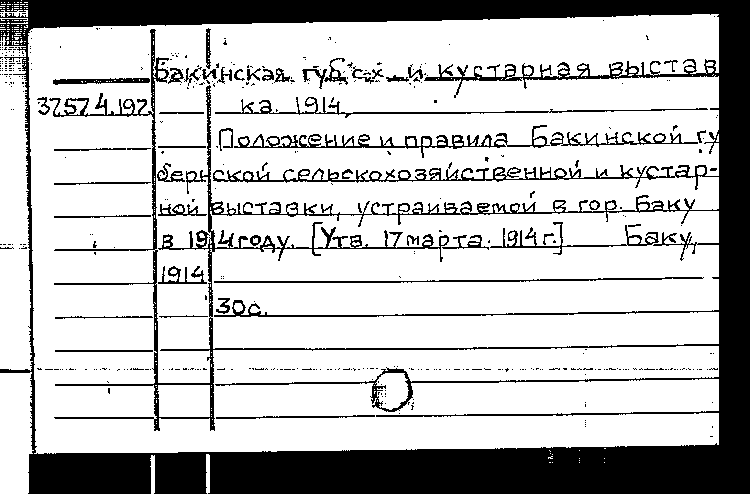 Бакинская губ. с.х. и кустарная выстав
37.57.4.192. ка. 1914,
Положение и правила Бакинской гу
бернской сельскохозяйственной и кустар-
ной выставки, устраиваемой в гор. Баку
в 1914 году. [Утв. 17 марта. 1914 г.] Баку,
1914
30 с.